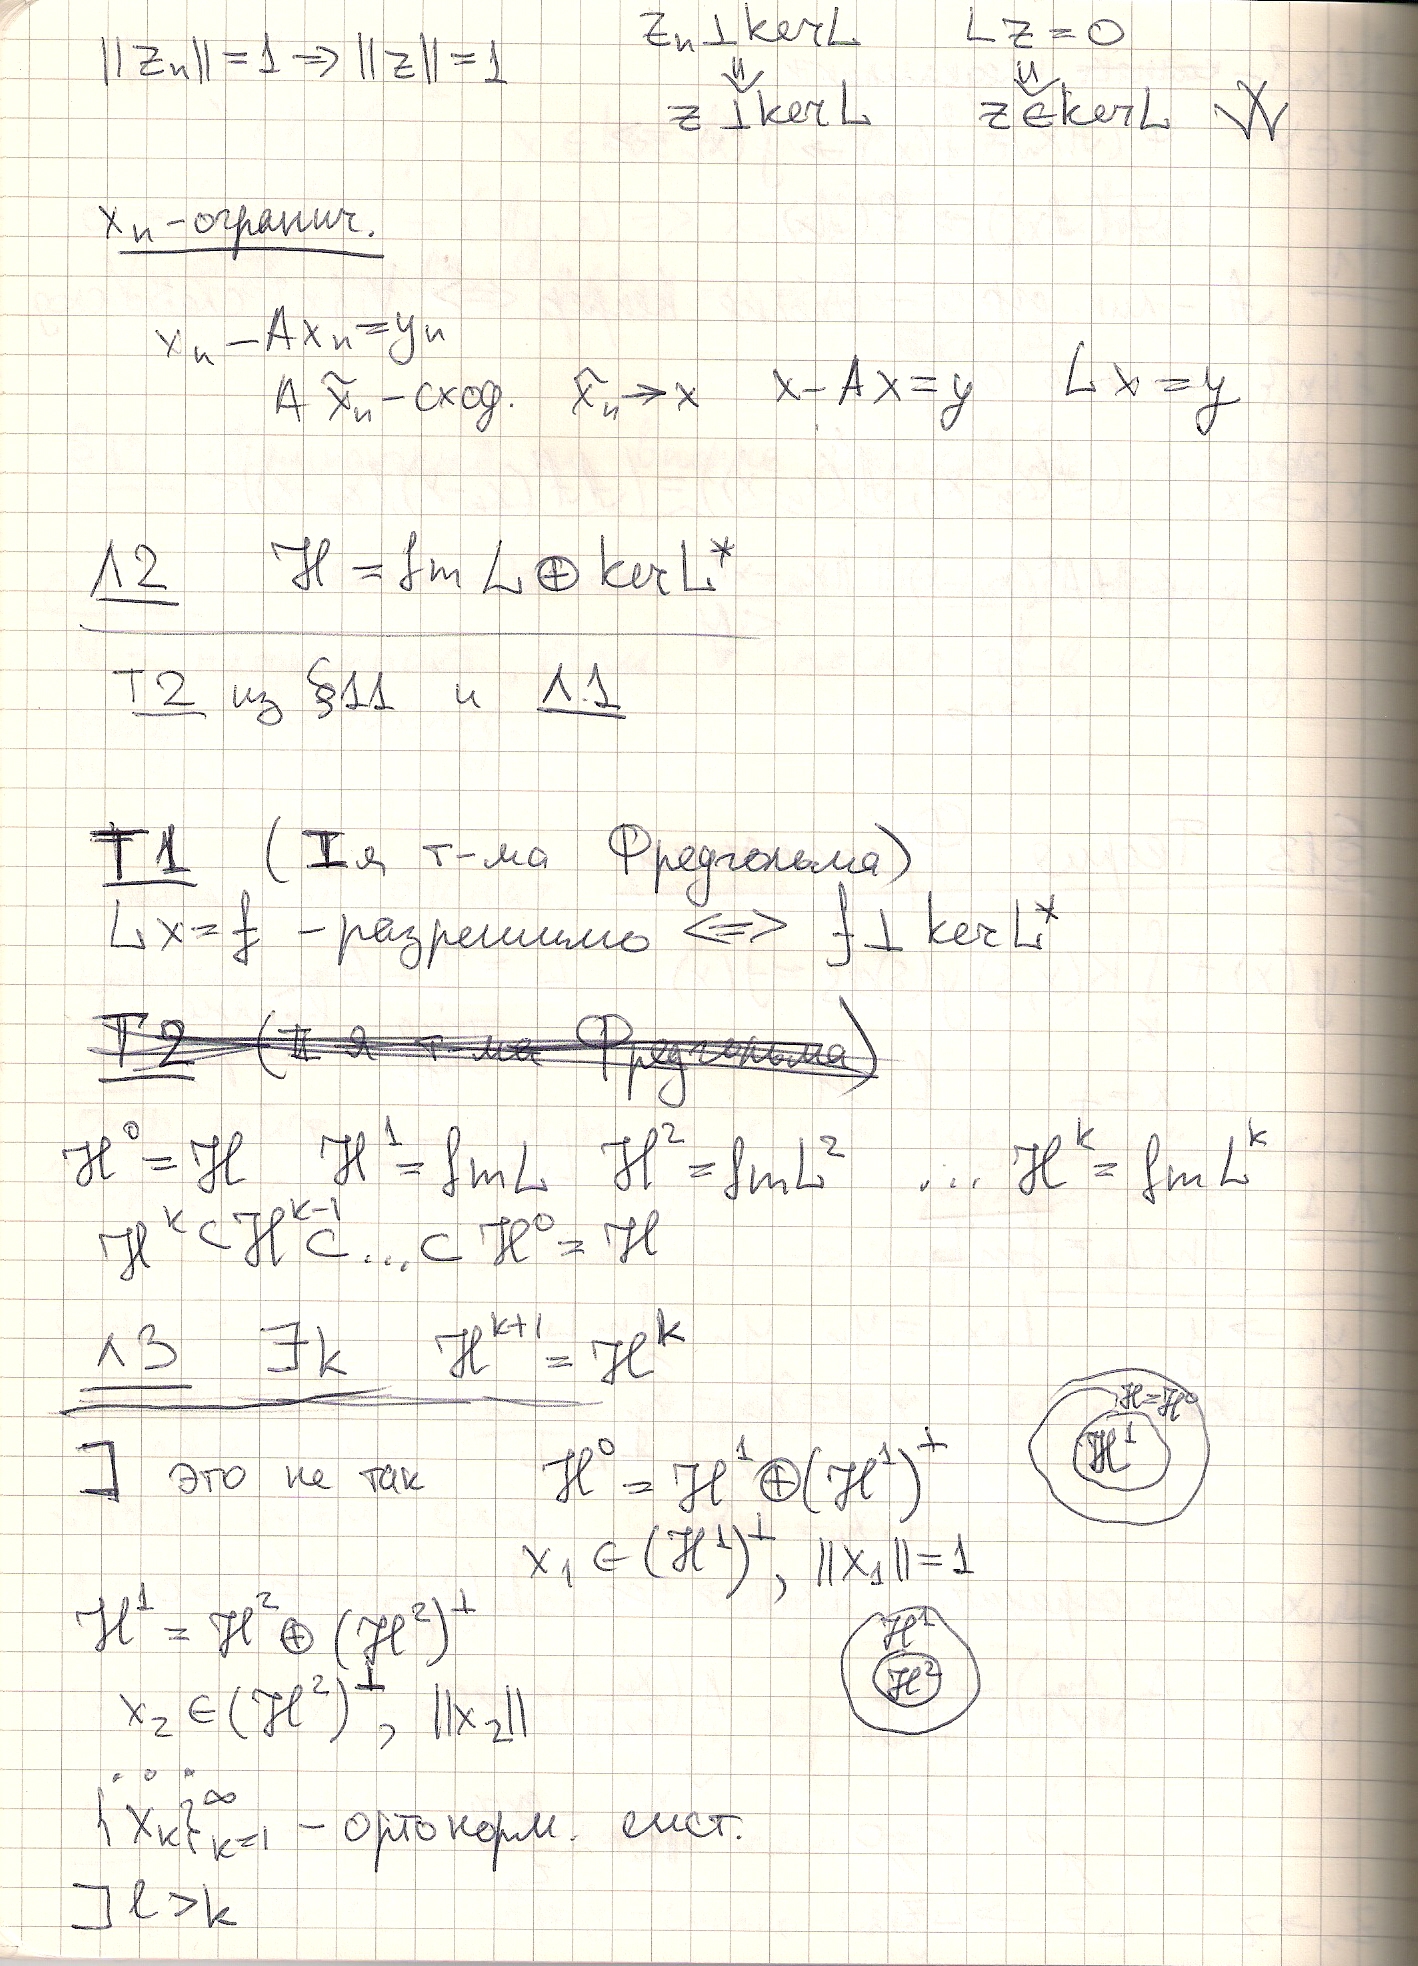 ||zₙ|| = 1 ⇒ ||z|| = 1
zₙ ⊥ ker L   L z = 0
⇓   ⇓
z ⊥ ker L   z ∈ ker L
xₙ - огранич.
xₙ - A xₙ = yₙ
A x̃ₙ - сход.   x̃ₙ → x   x - A x = y   L x = y
Л2   H = Im L ⊕ ker L*
Т2 из §11 и Л.1
Т1 (I я т-ма Фредгольма)
L x = f - разрешимо ⇔ f ⊥ ker L*
Т2 (II я т-ма Фредгольма)
H⁰ = H   H¹ = Im L   H² = Im L²   ... Hᵏ = Im Lᵏ
Hᵏ ⊂ Hᵏ⁻¹ ⊂ ... ⊂ H⁰ = H
Л3   ∃ k   Hᵏ⁺¹ = Hᵏ
H = H⁰
H¹
] это не так   H⁰ = H¹ ⊕ (H¹)^⊥
x₁ ∈ (H¹)^⊥, ||x₁|| = 1
H¹ = H² ⊕ (H²)^⊥
H¹
H²
x₂ ∈ (H²)^⊥, ||x₂||
. . .
{xₖ}_{k=1}^∞ - ортонорм. сист.
] l > k